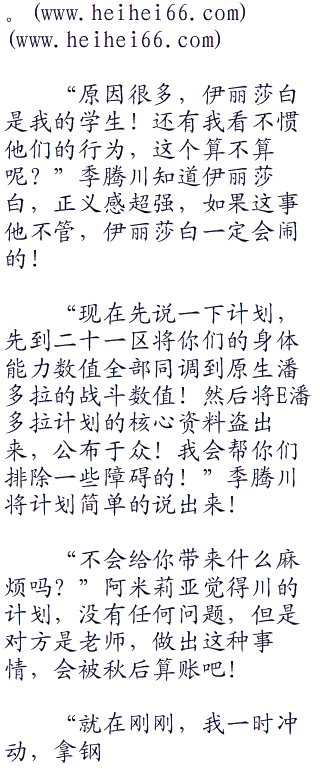 。(www.heihei66.com)
(www.heihei66.com)
“原因很多，伊丽莎白
是我的学生！还有我看不惯
他们的行为，这个算不算
呢？”季腾川知道伊丽莎
白，正义感超强，如果这事
他不管，伊丽莎白一定会闹
的！
“现在先说一下计划，
先到二十一区将你们的身体
能力数值全部同调到原生潘
多拉的战斗数值！然后将E潘
多拉计划的核心资料盗出
来，公布于众！我会帮你们
排除一些障碍的！”季腾川
将计划简单的说出来！
“不会给你带来什么麻
烦吗？”阿米莉亚觉得川的
计划，没有任何问题，但是
对方是老师，做出这种事
情，会被秋后算账吧！
“就在刚刚，我一时冲
动，拿钢